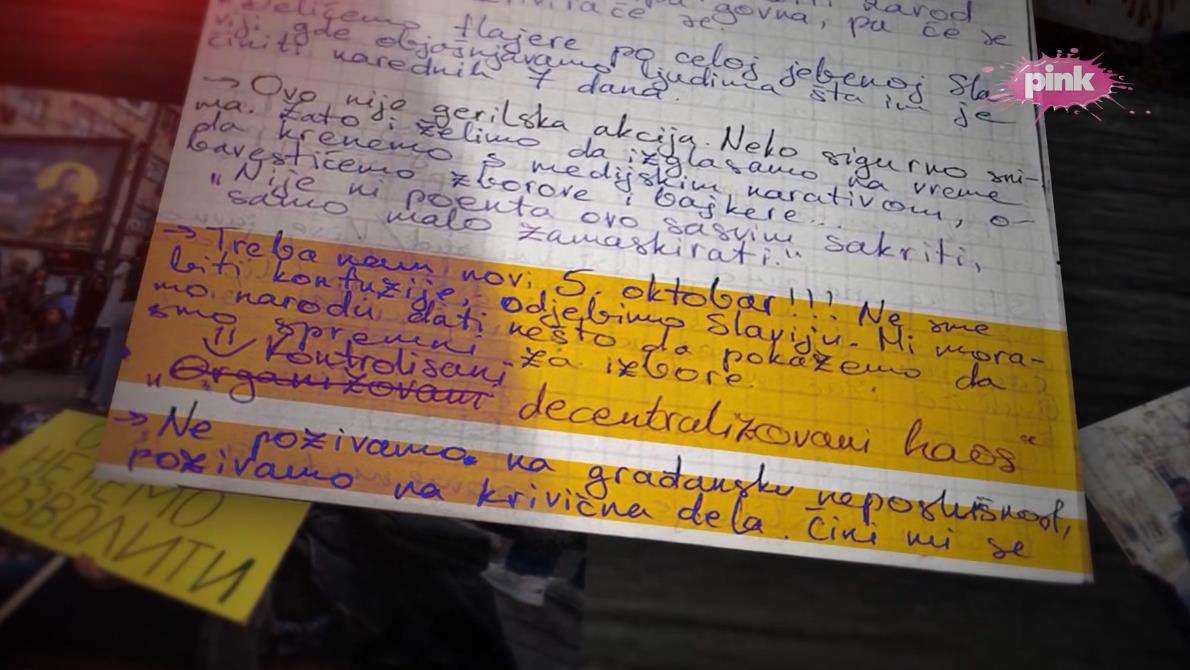 govna, pa će se
flajere po celoj jebenoj Sla
viji gde objašnjavamo ljudima šta im je
činiti narednih 7 dana.
→ Ovo nije gerilska akcija. Neko sigurno sni-
ma. Zato i želimo da izglasamo na vreme
da krenemo s medijskim narativom, o-
bavestićemo zborove i bajkere...
"Nije ni poenta ovo sasvim sakriti,
samo malo zamaskirati."
→ Treba nam novi 5. oktobar!!! Ne sme
biti konfuzije, odjebimo Slaviju. Mi mora-
mo narodu dati nešto da pokažemo da
smo spremni za izbore.
kontrolisani
"Organizovani decentralizovani haos"
→ Ne pozivamo na građansku neposlušnost,
pozivamo na krivična dela. Čini mi se
pink
НЕЋЕМО
ОЗВОЛИТИ